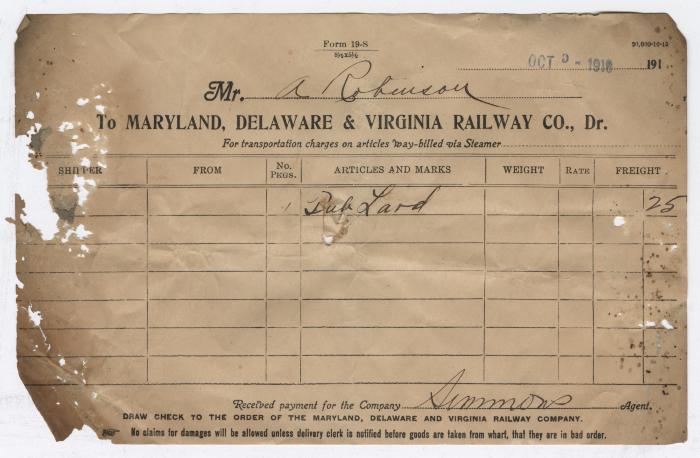 Form 19-S
5½x8½
20,000-10-15
OCT 9 - 1916 191
Mr. A Robinson
To MARYLAND, DELAWARE & VIRGINIA RAILWAY CO., Dr.
For transportation charges on articles way-billed via Steamer
SHIPPER FROM No. PKGS. ARTICLES AND MARKS WEIGHT RATE FREIGHT
1 Tub Lard 25
Received payment for the Company Simmons Agent.
DRAW CHECK TO THE ORDER OF THE MARYLAND, DELAWARE AND VIRGINIA RAILWAY COMPANY.
No claims for damages will be allowed unless delivery clerk is notified before goods are taken from wharf, that they are in bad order.